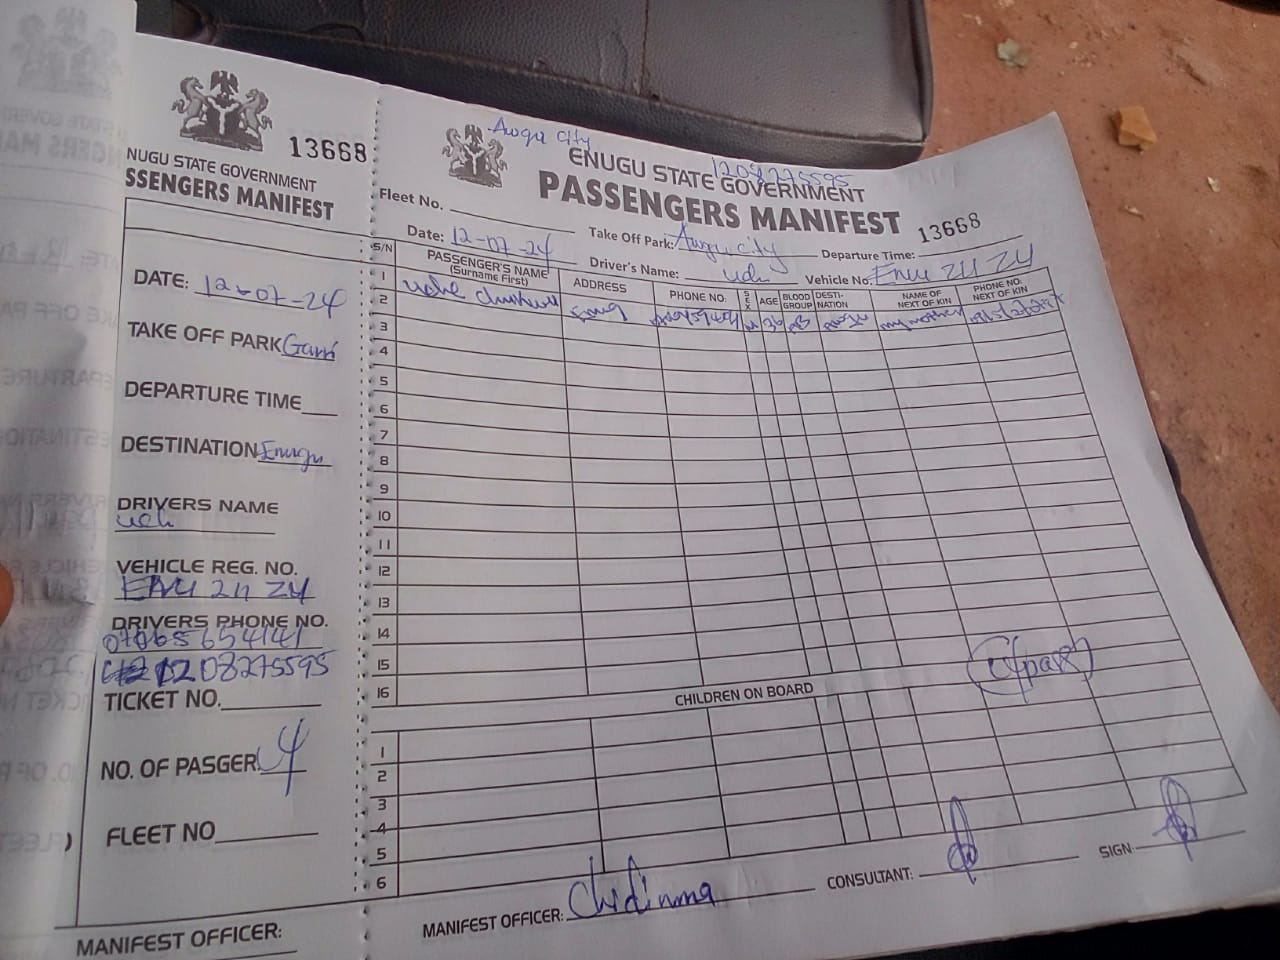 13668
NUGU STATE GOVERNMENT
SSENGERS MANIFEST
DATE: 12-07-24
TAKE OFF PARK
DEPARTURE TIME
DESTINATION Enugu
DRIVERS NAME
uch
VEHICLE REG. NO.
DRIVERS PHONE NO.
1208275595
TICKET NO.
NO. OF PASGER 4
FLEET NO
MANIFEST OFFICER:
Awgu City
1208275595
ENUGU STATE GOVERNMENT
PASSENGERS MANIFEST
13668
Fleet No.
Date: 12-07-24 Take Off Park: city Departure Time:
Driver's Name: Vehicle No:
S/N PASSENGER'S NAME (Surname First) ADDRESS PHONE NO: SEX AGE BLOOD GROUP DESTI- NATION NAME OF NEXT OF KIN PHONE NO. NEXT OF KIN
1 Uche
2
3
4
5
6
7
8
9
10
11
12
13
14
15
16
CHILDREN ON BOARD
1
2
3
4
5
6
MANIFEST OFFICER: Chidinma CONSULTANT: SIGN: